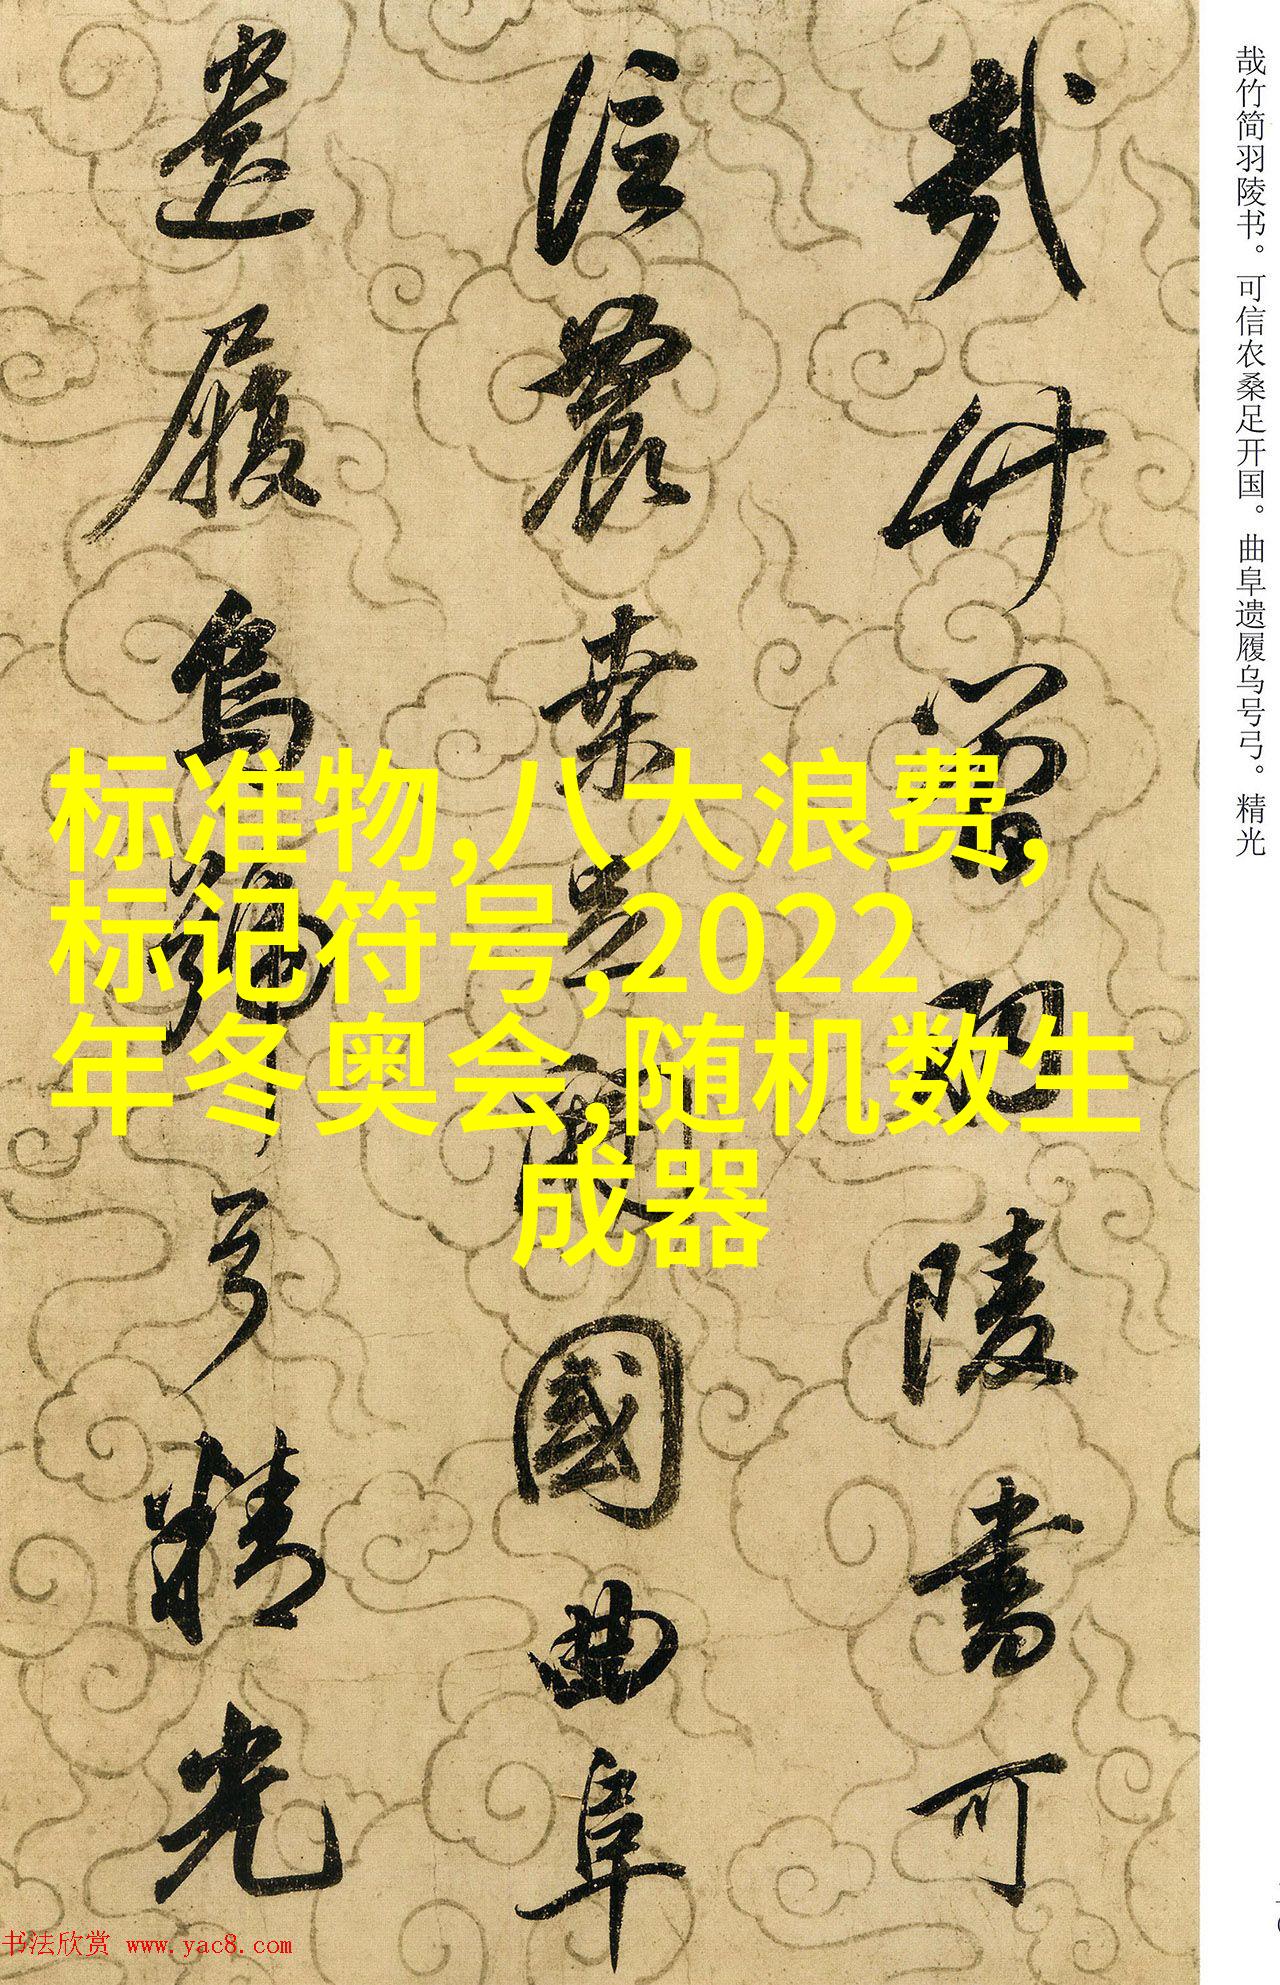 哉竹简羽陵书。可信农桑足开国。曲阜遗履乌号弓。精光
哉竹簡羽陵書可
信農桑足開國曲阜
遺履烏號弓精光
标准物,八大浪费,
标记符号,2022
年冬奥会,随机数生
成器
书法欣赏 www.yac8.com